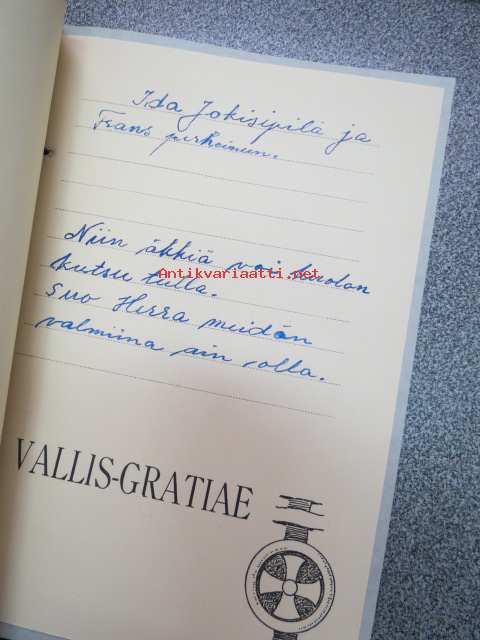 Ida Jokisipilä ja
Frans perheineen.
Niin äkkiä voi kuolon
kutsu tulla.
Antikvariaatti.net
suo Herra meidän
valmiina ain olla.
VALLIS-GRATIAE